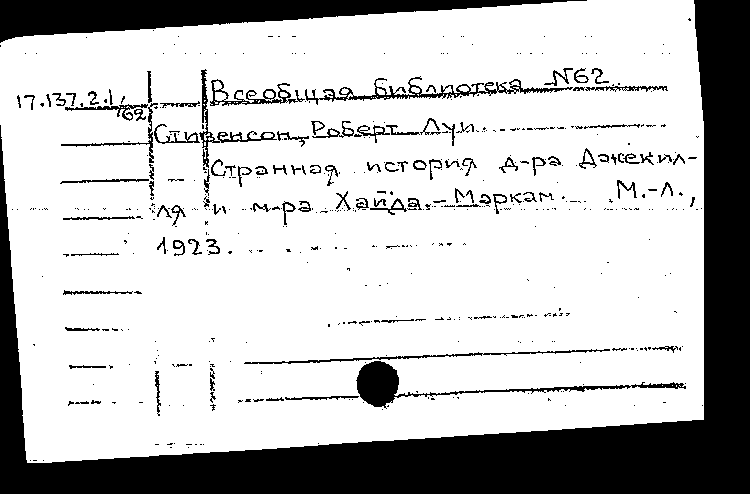 Всеобщая библиотека N62.
17.137.2.1/62
Стивенсон, Роберт Луи.
Странная история д-ра Джекил-
ля и м-ра Хайда. - Маркам. М.-Л.,
1923.